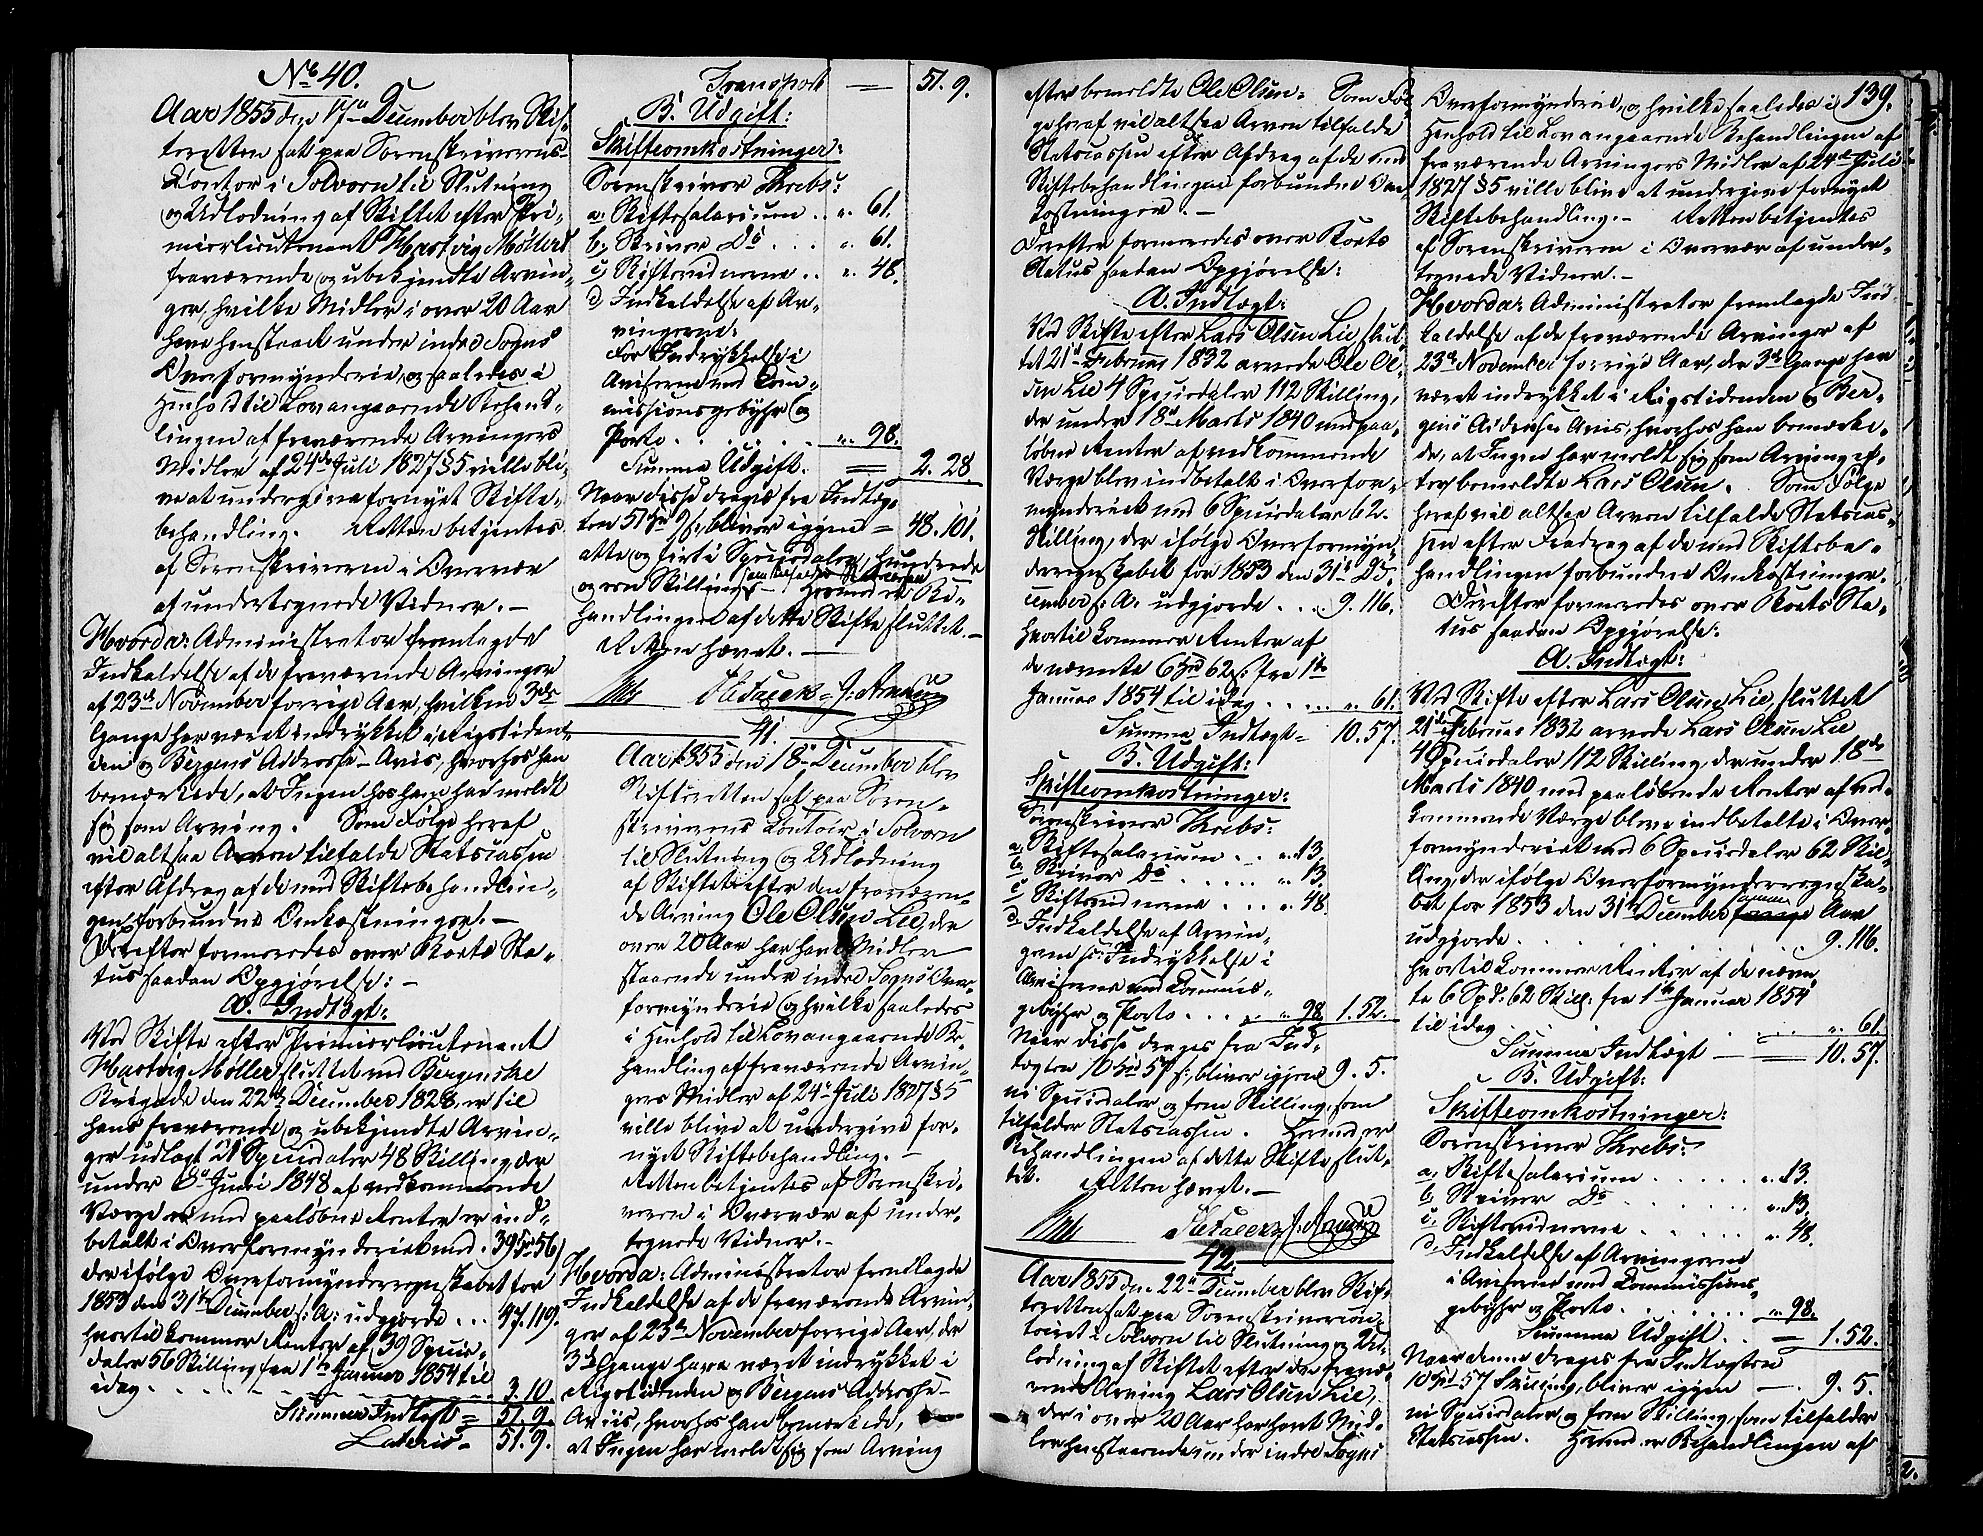 No 40.
Aar 1855 den 17de December blev Skif-
teretten sat paa Sorenskriverens
Contor i Solvorn til Slutning
og Udlodning af Skiftet efter Pri-
mierlieutenant Hartvig Møllers
fraværende og ubekjendte Arvin-
ger, hvilke Midler i over 20 Aar
have henstaaet under indre Sogns
Overformynderie, og saaledes i
Henhold til Lov angaaende Behand-
lingen af fraværende Arvingers
Midler af 24de Juli 1827 § 5 ville bli-
ve at undergive fornyet Skifte-
behandling. Retten betjentes
af Sorenskriveren i Overvær
af undertegnede Vidner.-
Hvorda: Administrator fremlagde
Indkaldelse af de fraværende Arvinger
af 23de November forrige Aar, hvilken 3de
Gange har været indrykket i Rigstiden-
den og Bergens Addresse-Avis, hvorhos han
bemærkede, at Ingen hos ham har meldt
sig som Arving. Som Følge heraf
vil altsaa Arven tilfalde Statscassen
efter Afdrag af de med Skiftebehandlin-
gen forbundne Omkostninger.-
Derefter formeredes over Boets Sta-
tus saadan Opgjørelse:-
A. Indtægt:
Ved Skifte efter Premierlieutenant
Hartvig Møller sluttet ved Bergenske
Brigade den 22de December 1828, er til
hans fraværende og ubekjendte Arvin-
ger udlagt 21 Speciedaler 48 Skilling, der
under 6te Juni 1848 af vedkommende
Værge med paaløbne Renter er ind-
betalt i Overformynderiet med. 39 Spd 56
der ifølge Overformynderregnskabet for
1853 den 31te December s: A: udgjorde ... 47. 119.
hvortil kommer Renter af 39 Specie-
daler 56 Skilling fra 1te Januar 1854 til
idag . . . 3. 10.
Summa Indtægt = 51. 9.
Lateris 51. 9.
Transport = 51. 9.
B. Udgift:
Skifteomkostninger:
Sorenskriver Krebs:
a, Skiftesalarium . . „ 61.
b, Skriver Do . . . „ 61.
c, Skiftevidnerne . . „ 48.
d, Indkaldelse af Ar-
vingerne:
for Indrykkelse i
Aviserne med Com-
missionsgebyhr og
Porto . . . „ 98.
Summa Udgift. = 2. 28
Naar disse drages fra Indtæg-
ten 51 Spd 9 s:, bliver igjen = 48. 101.
otte og firti Speciedaler, hundrede
og een Skilling, som tilfalder Statscassen
Hermed er Be-
handlingen af dette Skifte sluttet.-
Retten hævet.-
41.
Aar 1855 den 18de December blev
Skifteretten sat paa Soren-
skriverens Contoir i Solvorn
til Slutning og Udlodning
af Skiftet efter den fraværen-
de Arving Ole Olsen Lie, der
over 20 Aar har havt Midler
staaende under indre Sogns Over-
formynderie og hvilke saaledes
i Henhold til Lov angaaende Be-
handling af fraværende Arvin-
gers Midler af 24de Juli 1827 § 5
ville blive at undergive for-
nyet Skiftebehandling.-
Retten betjentes af Sorenskri-
veren i Overvær af under-
tegnede Vidner.-
Hvorda: Administrator fremlagde
Indkaldelse af de fraværende Arvin-
ger af 23de November forrige Aar, der
3de Gange have været indrykket i
Rigstidenden og Bergens Addresse-
Aviis, hvorhos han bemærkede,
at Ingen har meldt sig som Arving
efter bemeldte Ole Olsen. Som Føl-
ge heraf vil altsaa Arven tilfalde
Statscassen efter Afdrag af de med
Skiftebehandlingen forbundne Om-
kostninger.-
Derefter formeredes over Boets
Status saadan Opgjørelse:
A. Indtægt:
Ved Skifte efter Lars Olsen Lie, slut-
tet 21de Februar 1832 arvede Ole Ol-
sen Lie 4 Speciedaler 112 Skilling,
der under 18de Marts 1840 med paa-
løbne Renter af vedkommende
Værge blev indbetalt i Overfor-
mynderiet med 6 Speciedaler 62.
Skilling, der ifølge Overformyn-
derregnskabet for 1853 den 31te De-
cember s: A. udgjorde . . . 9. 116.
hvortil kommer Renter af
de nævnte 6 Spd 62 s: fra 1te
Januar 1854 til idag . . . „ 61.
Summa Indtægt = 10. 57.
B. Udgift:
Skifteomkostninger:
Sorenskriver Krebs:
a, Skiftesalarium . . „ 13.
b, Skriver Do . . . . „ 13.
c, Skiftevidnerne . . . „ 48.
d, Indkaldelse af Arvin-
gerne s: Indrykkelse i
Aviserne med Commis-
gebyhr og Porto . . . „ 98. 1. 52.
Naar disse drages fra Ind-
tægten 10 Spd 57 s:, bliver igjen 9. 5.
ni Speciedaler og fem Skilling, som
tilfalder Statscassen. Hermed er
Behandlingen af dette Skifte slut-
tet. Retten hævet.-
42.
Aar 1855 den 22de December blev Skif-
teretten sat paa Sorenskrivercon-
toiret i Solvorn til Slutning og Ud-
lodning af Skiftet efter den fravæ-
rende Arving Lars Olsen Lie,
der i over 20 Aar har havt Mid-
ler henstaaende under indre Sogns
139.
Overformynderie, og hvilke saaledes i
Henhold til Lov angaaende Behandlingen af
fraværende Arvingers Midler af 24de Juli
1827 § 5 ville blive at undergive fornyet
Skiftebehandling.- Retten betjentes
af Sorenskriveren i Overvær af under-
tegnede Vidner.-
Hvorda: Administrator fremlagde Ind-
kaldelse af de fraværende Arvinger af
23de November forrige Aar, der 3de Gange har
været indrykket i Rigstidenden og Ber-
gens Addresse Avis, hvorhos han bemærke-
de, at Ingen har meldt sig som Arving ef-
ter bemeldte Lars Olsen. Som Følge
heraf vil altsaa Arven tilfalde Statscas-
sen efter Fradrag af de med Skiftebe-
handlingen forbundne Omkostninger.
Derefter formeredes over Boets Sta-
tus saadan Opgjørelse:
A. Indtægt:
Ved Skifte efter Lars Olsen Lie, sluttet
21de Februar 1832 arvede Lars Olsen Lie
4 Speciedaler 112 Skilling, der under 18de
Marts 1840 med paaløbende Renter af ved-
kommende Værge bleve indbetalte i Over-
formynderiet med 6 Speciedaler 62 Skil-
ling, der ifølge Overformynderregnska-
bet for 1853 den 31te December samme Aar
udgjorde . . . 9. 116.
hvortil kommer Renter af de nævn-
te 6 Spd: 62 Skill: fra 1te Januar 1854
til idag . . . „ 61.
Summa Indtægt — 10. 57.
B. Udgift:
Skifteomkostninger:
Sorenskriver Krebs:
a, Skiftesalarium . . . . „ 13.
b, Skriver Do . . . . „ 13.
c, Skiftevidnerne . . . . „ 48.
d, Indkaldelse af Arvingerne
i Aviserne med Commissions-
gebyhr og Porto . . . . „ 98.
Summa Udgift . . = 1. 52.
Naar denne drages fra Indtægten
10 Spd 57 Skilling, bliver igjen — 9. 5.
ni Speciedaler og fem Skilling, som tilfalder
Statscassen. Hermed er Behandlingen af